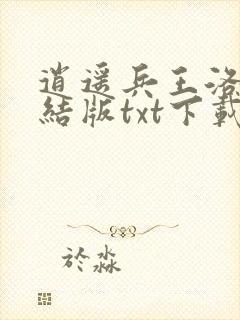 逍遥兵王洛
結版txt下載
於淼